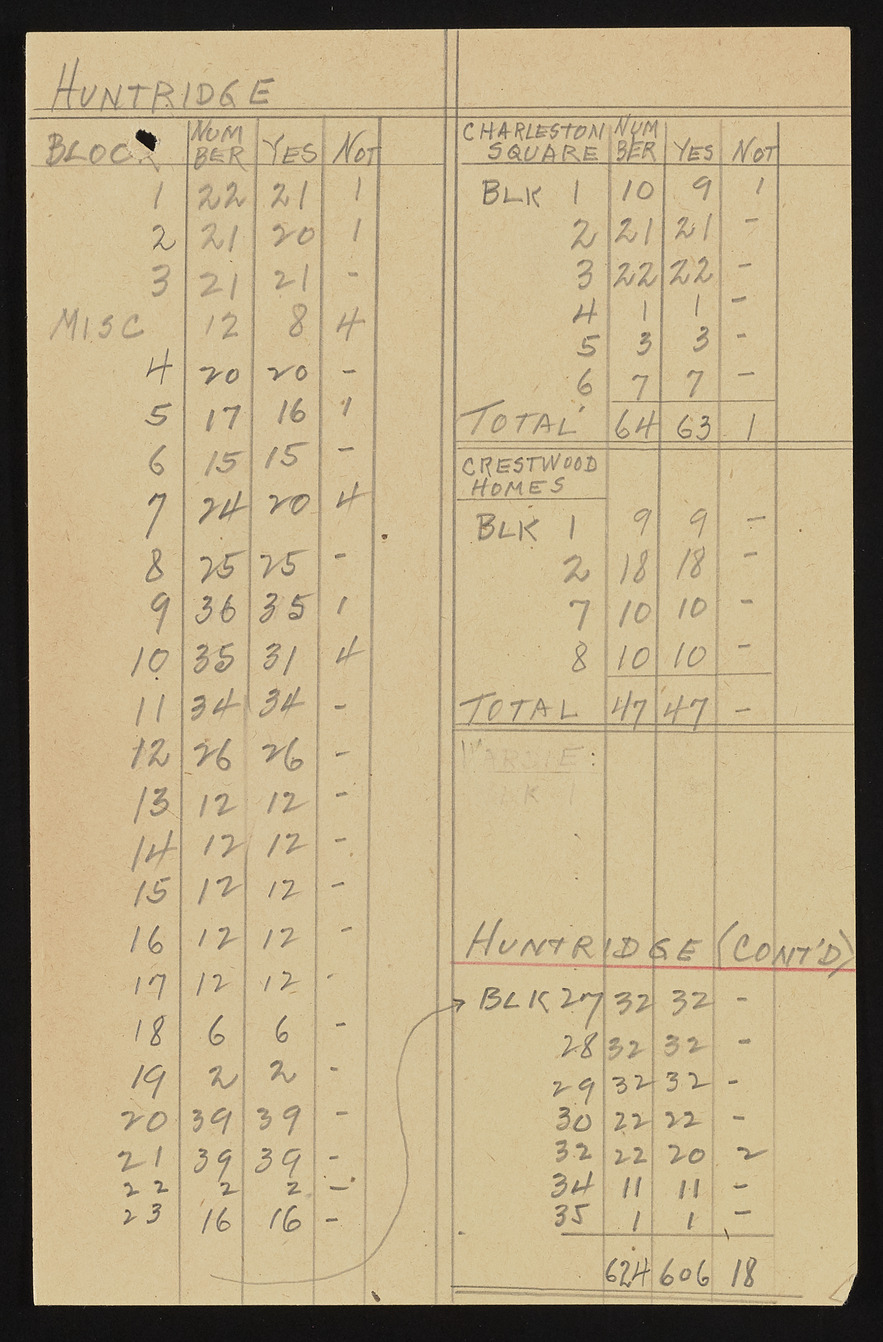 HUNTRIDGE
BLOC NUMBER YES NOT
1 22 21 1
2 21 20 1
3 21 21 -
MISC 12 8 4
4 20 20 -
5 17 16 1
6 15 15 -
7 24 20 4
8 25 25 -
9 36 35 1
10 35 31 4
11 34 34 -
12 26 26 -
13 12 12 -
14 12 12 -
15 12 12 -
16 12 12 -
17 12 12 -
18 6 6 -
19 2 2 -
20 39 39 -
21 39 39 -
22 2 2 -
23 16 16 -
CHARLESTON NUM
SQUARE BER YES NOT
BLK 1 10 9 1
2 21 21 -
3 22 22 -
4 1 1 -
5 3 3 -
6 7 7 -
TOTAL 64 63 1
CRESTWOOD
HOMES
BLK 1 9 9 -
2 18 18 -
7 10 10 -
8 10 10 -
TOTAL 47 47 -
HUNTRIDGE (CONT'D)
BLK 27 32 32 -
28 32 32 -
29 32 32 -
30 22 22 -
32 22 20 2
34 11 11 -
35 1 1 -
624 606 18